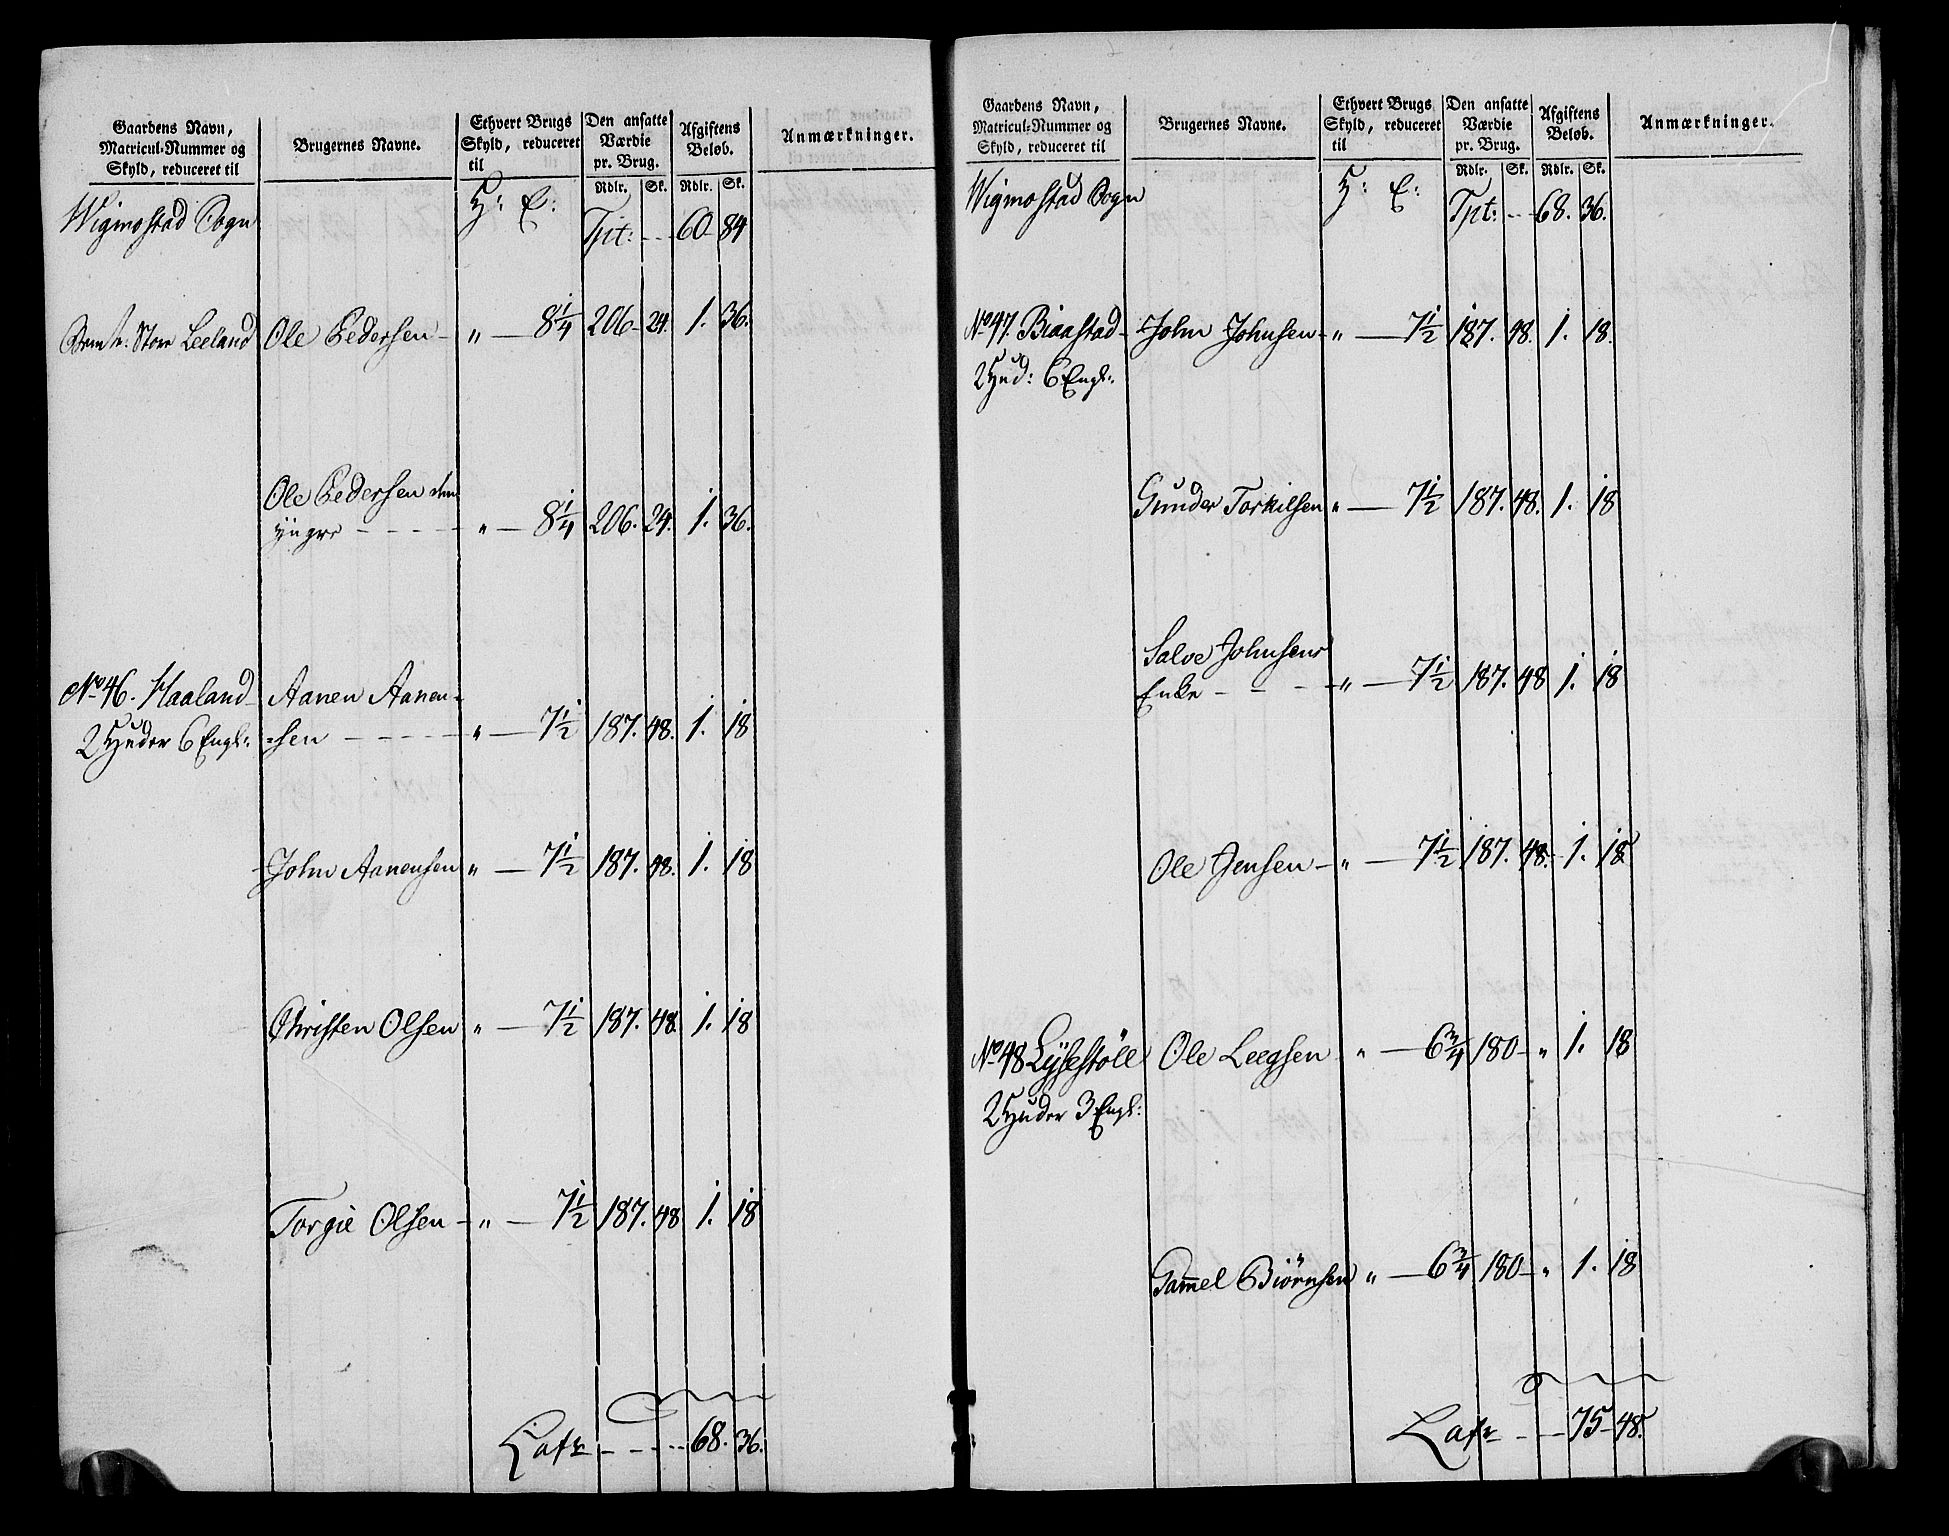 Gaardens Navn,
Matricul-Nummer og
Skyld, reduceret til
Brugernes Navne.
Ethvert Brugs
Skyld, reduceret
til
Den ansatte
Værdie
pr. Brug.
Afgiftens
Beløb.
Anmærkninger.
Rdlr. Sk. Rdlr. Sk.
Wigmostad Sogn H: E: Tpt: - - - 60 84
Store Leeland Ole Pedersen - „ — 8 1/4 206 - 24. 1. 36.
Ole Pedersen den
yngre - - - - „ — 8 1/4 206. 24. 1. 36.
No 46. Haaland Aanen Aanen-
2 Huder 6 Engl: -sen - - - - „ — 7 1/2 187. 48. 1. 18
John Aanensen „ — 7 1/2 187. 48. 1. 18
Christen Olsen „ — 7 1/2 187. 48. 1. 18
Torgie Olsen - „ — 7 1/2 187. 48 1. 18
Lats - - - - 68. 36.
Gaardens Navn,
Matricul-Nummer og
Skyld, reduceret til
Brugernes Navne.
Ethvert Brugs
Skyld, reduceret
til
Den ansatte
Værdie
pr. Brug.
Afgiftens
Beløb.
Anmærkninger.
Rdlr. Sk. Rdlr. Sk.
Wigmostad Sogn H: E: Tpt: - - - 68. 36.
No 47 Biaastad - John Johnsen - „ — 7 1/2 187. 48. 1. 18.
2 Hud: 6 Engl:
Gunder Torkilsen „ — 7 1/2 187. 48. 1. 18
Salve Johnsens
Enke - - - - „ — 7 1/2 187. 48 1. 18
Ole Jensen - „ — 7 1/2 187. 48. 1. 18
No 48 Lysestöll Ole Leegsen „ — 6 3/4 180 - „ 1. 18
2 Huder 3 Engl:
Gam̅el Biörnsen „ — 6 3/4 180 - „ 1. 18
Lats - - 75 - 48.